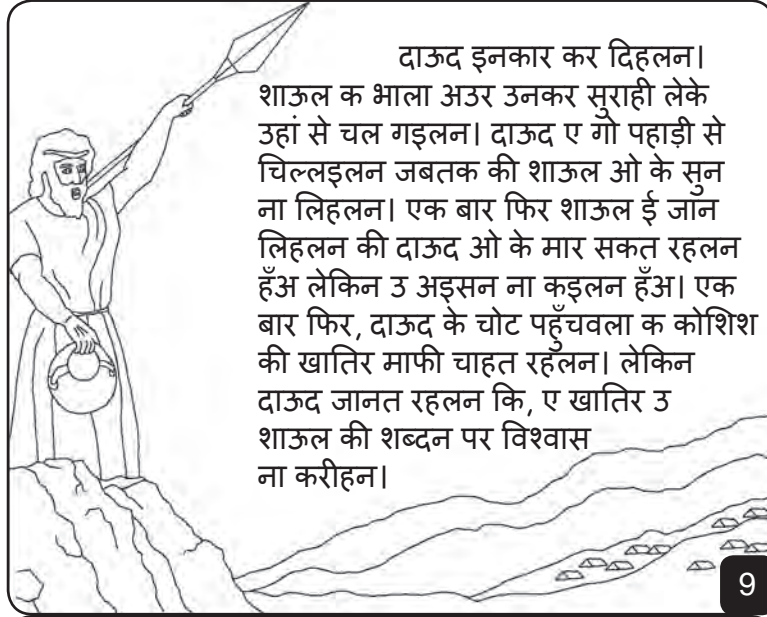 दाऊद इनकार कर दिहलन।
शाऊल क भाला अउर उनकर सुराही लेके
उहां से चल गइलन। दाऊद ए गो पहाड़ी से
चिल्लइलन जबतक की शाऊल ओ के सुन
ना लिहलन। एक बार फिर शाऊल ई जान
लिहलन की दाऊद ओ के मार सकत रहलन
हँअ लेकिन उ अइसन ना कइलन हँअ। एक
बार फिर, दाऊद के चोट पहुँचवला क कोशिश
की खातिर माफी चाहत रहलन। लेकिन
दाऊद जानत रहलन कि, ए खातिर उ
शाऊल की शब्दन पर विश्वास
ना करीहन।
9